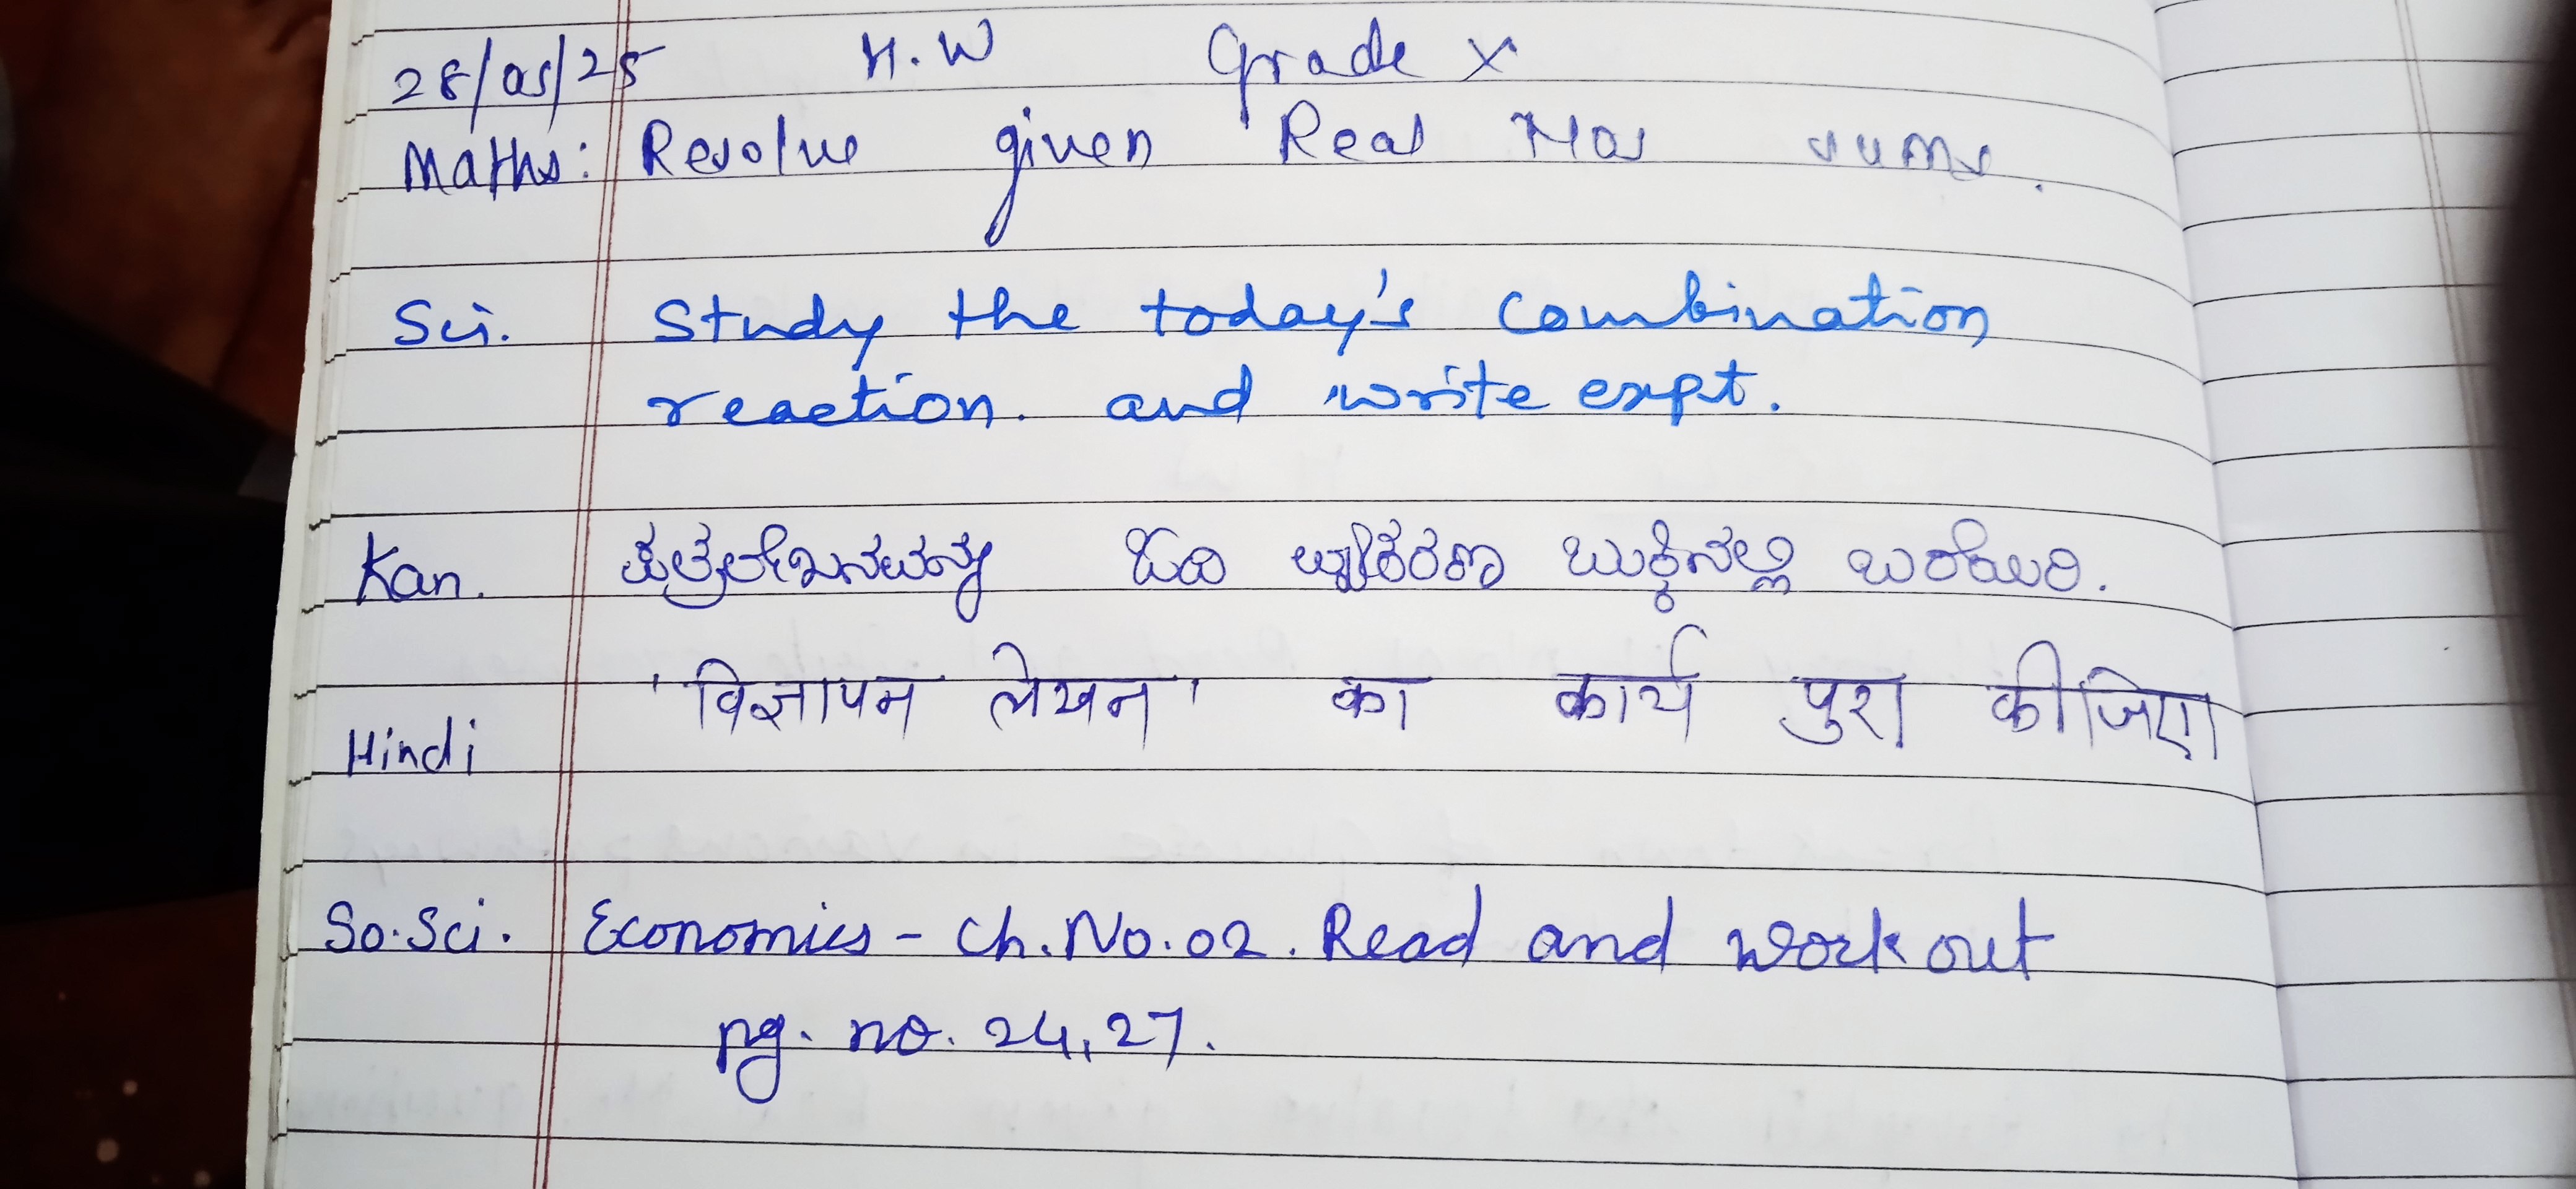 28/05/25 H.W Grade X
Maths: Resolve given Real Nos sums.
Sci. Study the today's combination
reaction. and write expt.
Kan. ಪತ್ರಲೇಖನವನ್ನು ಓದಿ ವ್ಯಾಕರಣ ಬುಕ್ಕಿನಲ್ಲಿ ಬರೆಯಿರಿ.
Hindi 'विज्ञापन लेखन' का कार्य पुरा कीजिए।
So.Sci. Economics - Ch.No.02. Read and work out
pg. no. 24, 27.